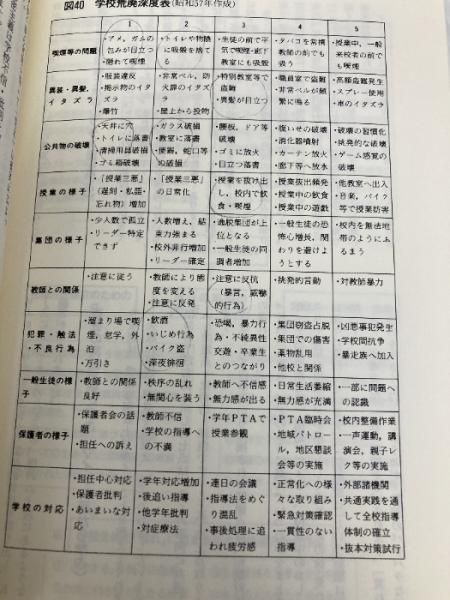 図40 学校荒廃深度表(昭和57年作成)
1
2
3
4
5
喫煙等の問題
・アメ、ガムの
包みが目立つ
・隠れて喫煙
・トイレや物陰
に吸殻を捨て
る
・生徒の前で平
気で喫煙・廊下
教室にも吸殻
・タバコを常携
教師の前でも
吸う
・授業中、一般
来校者の前で
も喫煙
異装・異髪、
イタズラ
・服装違反
・掲示物のイタ
ズラ
・爆竹
・非常ベル、防
火扉のイタズ
ラ
・屋上から投物
・特別教室等で
盗難
・異髪が目立つ
・職員室で盗難
・非常ベルが頻
繁に鳴る
・高額盗難発生
・スプレー使用
・車のイタズラ
公共物の破壊
・天井に穴
・トイレに落書
・清掃用具破損
・ゴミ箱破壊
・ガラス破損
・教室に落書
・便器、蛇口等
の破損
・腰板、ドア等
破壊
・ゴミに放火
・目立つ落書
・腹いせの破壊
・消化器噴射
・カーテン放火
・廊下等へ放水
・破壊の習慣化
・挑発的な破壊
・ゲーム感覚の
破壊
授業の様子
・「授業三悪」
(遅刻・私語・
忘れ物)増加
・「授業三悪」
の日常化
・授業を抜け出
し、校内で飲
食・喫煙
・授業抜出頻発
・授業中の飲食
・授業中の遊戯
・他教室へ出入
・音楽、バイク
等で授業妨害
集団の様子
・少人数で孤立
・リーダー特定
できず
・人数増え、結
束力強まる
・校外非行増加
・リーダー確定
・逸脱集団が上
位となる
・一般生徒の同
調者増加
・一般生徒の恐
怖心増長、関
わりを避けよ
うとする
・校内を無法地
帯のようにふ
るまう
教師との関係
・注意に従う
・教師により態
度を変える
・注意に反発
・注意に反抗
(暴言、威嚇
的行為)
・挑発的言動
・対教師暴力
犯罪・触法
・不良行為
・溜まり場で喫
煙、怠学、外
泊
・万引き
・飲酒
・いじめ行為
・バイク盗
・深夜徘徊
・恐喝、暴力行
為・不純異性
交遊・卒業生
とのつながり
・集団窃盗占脱
・集団での傷害
・薬物乱用
・他校と関係
・凶悪事犯発生
・学校間抗争
・暴走族へ加入
一般生徒の様
子
・教師との関係
良好
・秩序の乱れ
・無関心を装う
・教師へ不信感
・無力感が出る
・日常生活萎縮
・無力感が充満
・一部に問題へ
の認識
保護者の様子
・保護者会の話
題
・担任への訴え
・教師不信
・学校の指導へ
の不満
・学年PTAで
授業参観
・PTA臨時会
・地域パトロー
ル、地区懇談
会等の実施
・校内整備作業
・一声運動、講
演会、親子レ
ク等の実施
学校の対応
・担任中心対応
・保護者批判
・あいまいな対
応
・学年対応増加
・後追い指導
・他学年批判
・対症療法
・連日の会議
・指導法をめぐ
り混乱
・事後処理に追
われ疲労感
・正常化への様
々な取り組み
・緊急対策確認
・一貫性のない
指導
・外部諸機関
・共通実践を通
して全校指導
体制の確立
・抜本対策試行